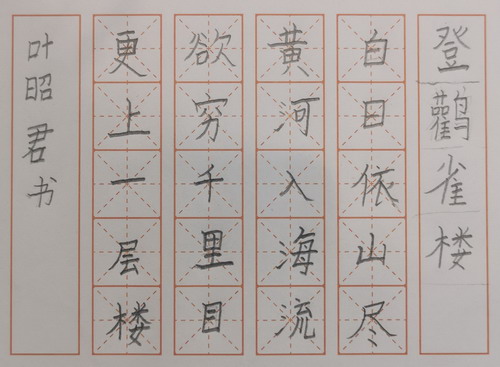 登鸛雀楼
白日依山尽
黄河入海流
欲穷千里目
更上一层楼
叶昭君书